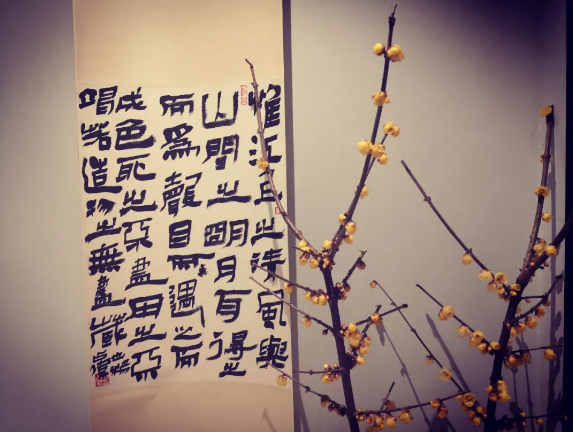 惟江上之清風與
山間之明月耳得之
而爲聲目而遇之而
成色取之不盡用之不
竭者造物之無盡藏